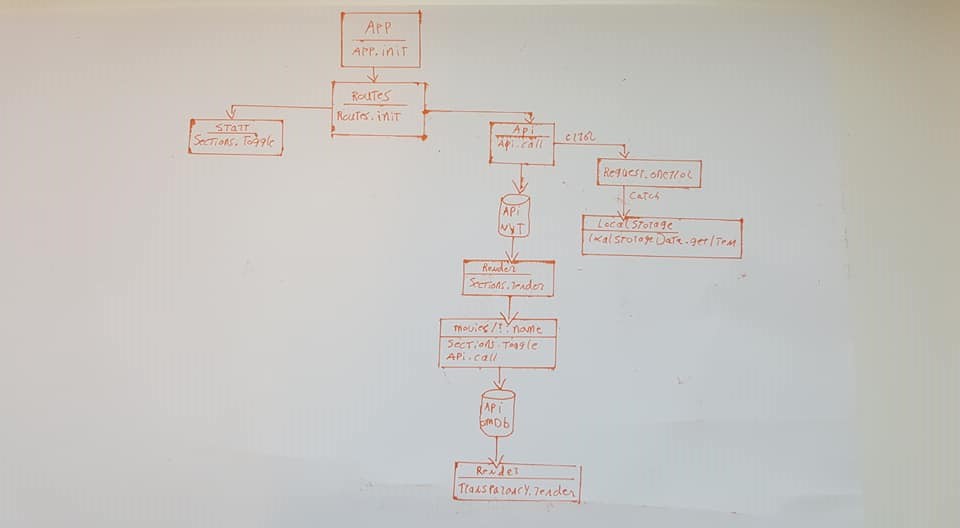 APP
APP.iniT
RouTes
RouTes.iniT
STarT
SecTions.Toggle
Api
Api.call
error
RequesT.onerror
CaTch
LocalSTorage
localSTorageDaTa.getITem
APi
NYT
Render
SecTions.render
movies/?:name
SecTions.Toggle
APi.call
APi
OMDb
Render
Transparancy.render